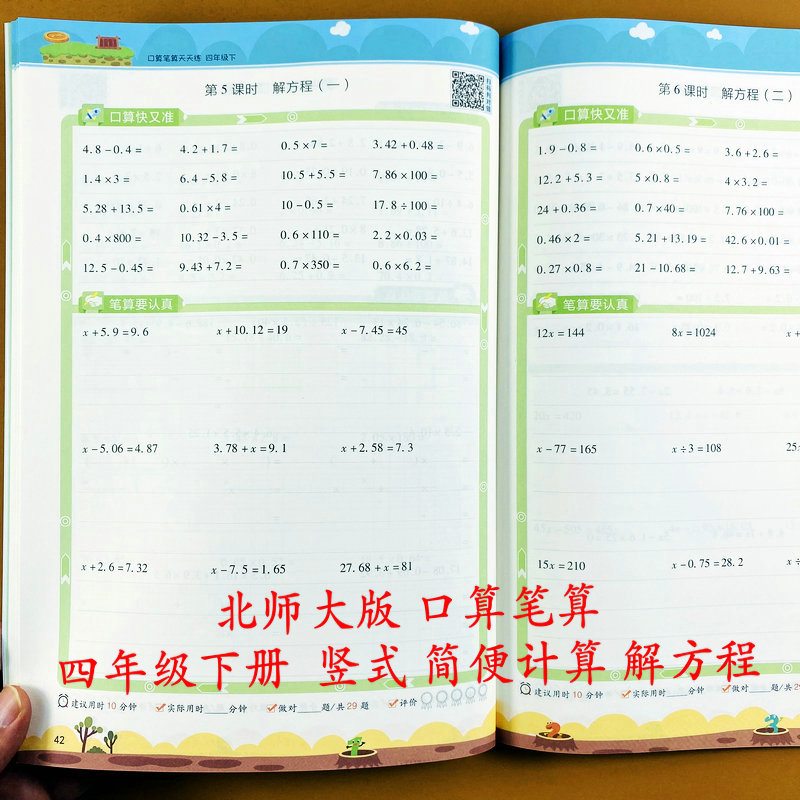 口算笔算天天练 四年级下
第5课时 解方程(一)
扫码判对错
口算快又准
4.8-0.4= 4.2+1.7= 0.5×7= 3.42+0.48=
1.4×3= 6.4-5.8= 10.5+5.5= 7.86×100=
5.28+13.5= 0.61×4= 10-0.5= 17.8÷100=
0.4×800= 10.32-3.5= 0.6×110= 2.2×0.03=
12.5-0.45= 9.43+7.2= 0.7×350= 0.6×6.2=
笔算要认真
x+5.9=9.6 x+10.12=19 x-7.45=45
x-5.06=4.87 3.78+x=9.1 x+2.58=7.3
x+2.6=7.32 x-7.5=1.65 27.68+x=81
建议用时10分钟 实际用时 分钟 做对 题/共29题 评价
42
第6课时 解方程(二)
口算快又准
1.9-0.8= 0.6×0.5= 3.6+2.6=
12.2+5.3= 5×0.8= 4×3.2=
24+0.36= 0.7×40= 7.76×100=
0.46×2= 5.21+13.19= 42.6×0.01=
0.27×0.8= 21-10.68= 12.7+9.63=
笔算要认真
12x=144 8x=1024 x+
x-77=165 x÷3=108 25x
15x=210 x-0.75=28.2 x
建议用时10分钟 实际用时 分钟 做对 题/共2
北师大版 口算笔算
四年级下册 竖式 简便计算 解方程